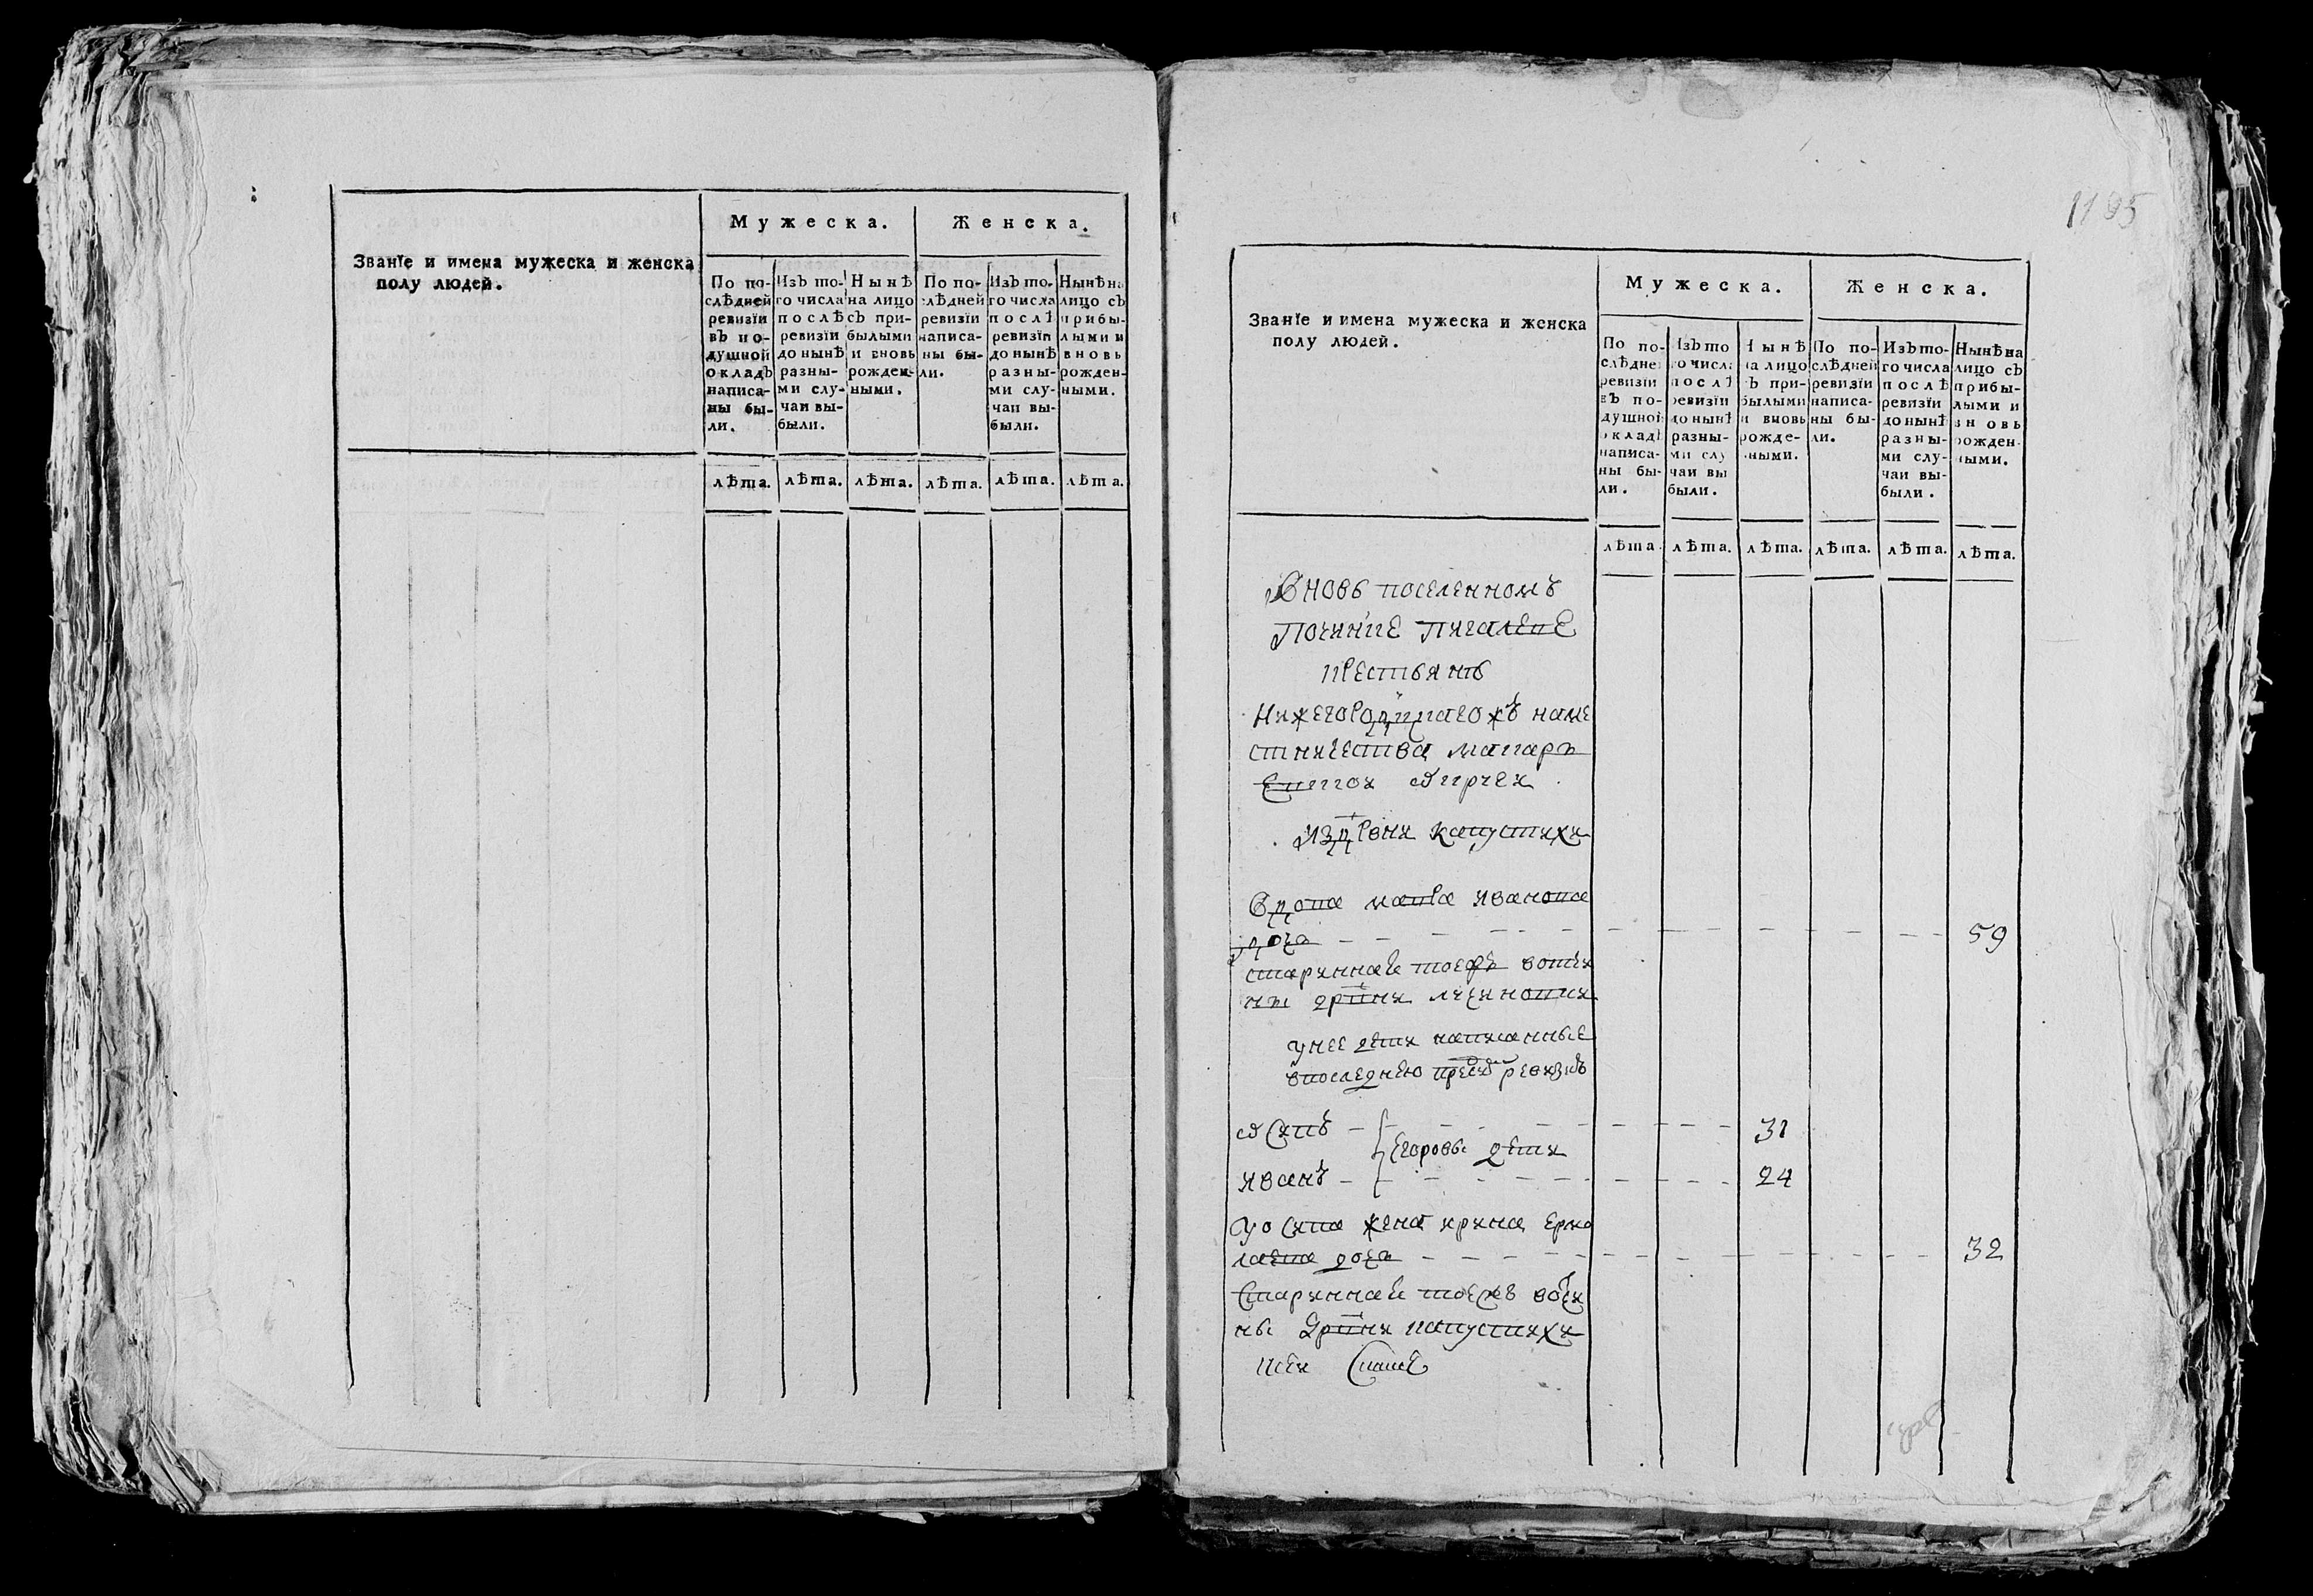 Званїе и имена мужеска и женска
полу людей.
Мужеска.
Женска.
По по-
слѣдней
ревизіи
въ по-
душной
окладъ
написа-
ны бы-
ли.
Изъ то-
го числа
послѣ
ревизіи
до нынѣ
разны-
ми слу-
чаи вы-
были.
Нынѣ
на лицо
съ при-
былыми
и вновь
рожден-
ными.
По по-
слѣдней
ревизїи
написа-
ны бы-
ли.
Изъ то-
го числа
послѣ
ревизїи
до нынѣ
разны-
ми слу-
чаи вы-
были.
Нынѣ на
лицо съ
прибы-
лыми и
вновь
рожден-
ными.
лѣта. лѣта. лѣта. лѣта. лѣта. лѣта.
1195
Званїе и имена мужеска и женска
полу людей.
Мужеска.
Женска.
По по-
слѣдне
ревизїи
въ по-
душной
окладъ
написа-
ны бы-
ли.
Изъ то
го числа
послѣ
ревизїи
до нынѣ
разны-
ми слу
чаи вы
были.
Нынѣ
на лицо
съ при-
былыми
и вновь
рожде-
ными.
По по-
слѣдней
ревизїи
написа-
ны бы-
ли.
Изъ то-
го числа
послѣ
ревизїи
до нынѣ
разны-
ми слу-
чаи вы-
были.
Нынѣ на
лицо съ
прибы-
лыми и
вновь
рожден-
ными.
лѣта. лѣта. лѣта. лѣта. лѣта. лѣта.
Вновь поселенномъ
Починке
крестьянъ
Нижегородцкагожъ наме
стничества макарь
евской округи
из дрвни капустихи
Вдова мавра иванова
дочь 59
стариннае тоежъ вотчи
ны дрвни
унее дети написанные
впоследнею пред ревизиѣ
осипъ 31
Егоровы дети
иванъ 24
уосипа жена ирина ермо
лаева дочь 32
Стариннае тоежъ вотчи
ны дрвни капустихи